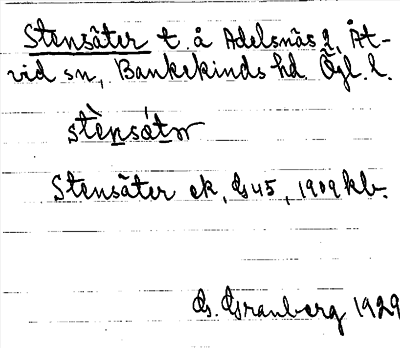 Stensäter t. å Adelsnäs 2, Åt-
vid sn, Bankekinds hd. Ögl. l.
stènsátər
Stensäter ek, Gs 45, 1909 kb.
G. Granberg 1929